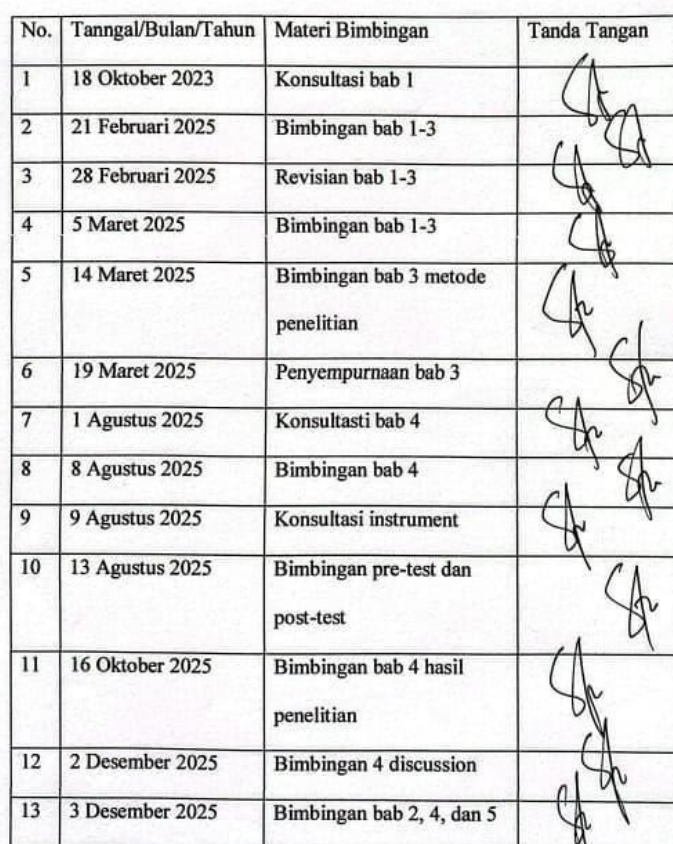 No. Tanngal/Bulan/Tahun Materi Bimbingan Tanda Tangan
1 18 Oktober 2023 Konsultasi bab 1
2 21 Februari 2025 Bimbingan bab 1-3
3 28 Februari 2025 Revisian bab 1-3
4 5 Maret 2025 Bimbingan bab 1-3
5 14 Maret 2025 Bimbingan bab 3 metode
penelitian
6 19 Maret 2025 Penyempurnaan bab 3
7 1 Agustus 2025 Konsultasti bab 4
8 8 Agustus 2025 Bimbingan bab 4
9 9 Agustus 2025 Konsultasi instrument
10 13 Agustus 2025 Bimbingan pre-test dan
post-test
11 16 Oktober 2025 Bimbingan bab 4 hasil
penelitian
12 2 Desember 2025 Bimbingan 4 discussion
13 3 Desember 2025 Bimbingan bab 2, 4, dan 5